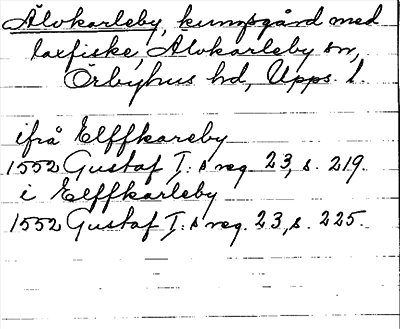 Älvkarleby, kungsgård med
laxfiske, Älvkarleby sn,
Örbyhus hd, Upps. l.
ifrå Elffkareby
1552 Gustaf I:s reg. 23, s. 219.
i Elffkarleby
1552 Gustaf I:s reg. 23, s. 225.